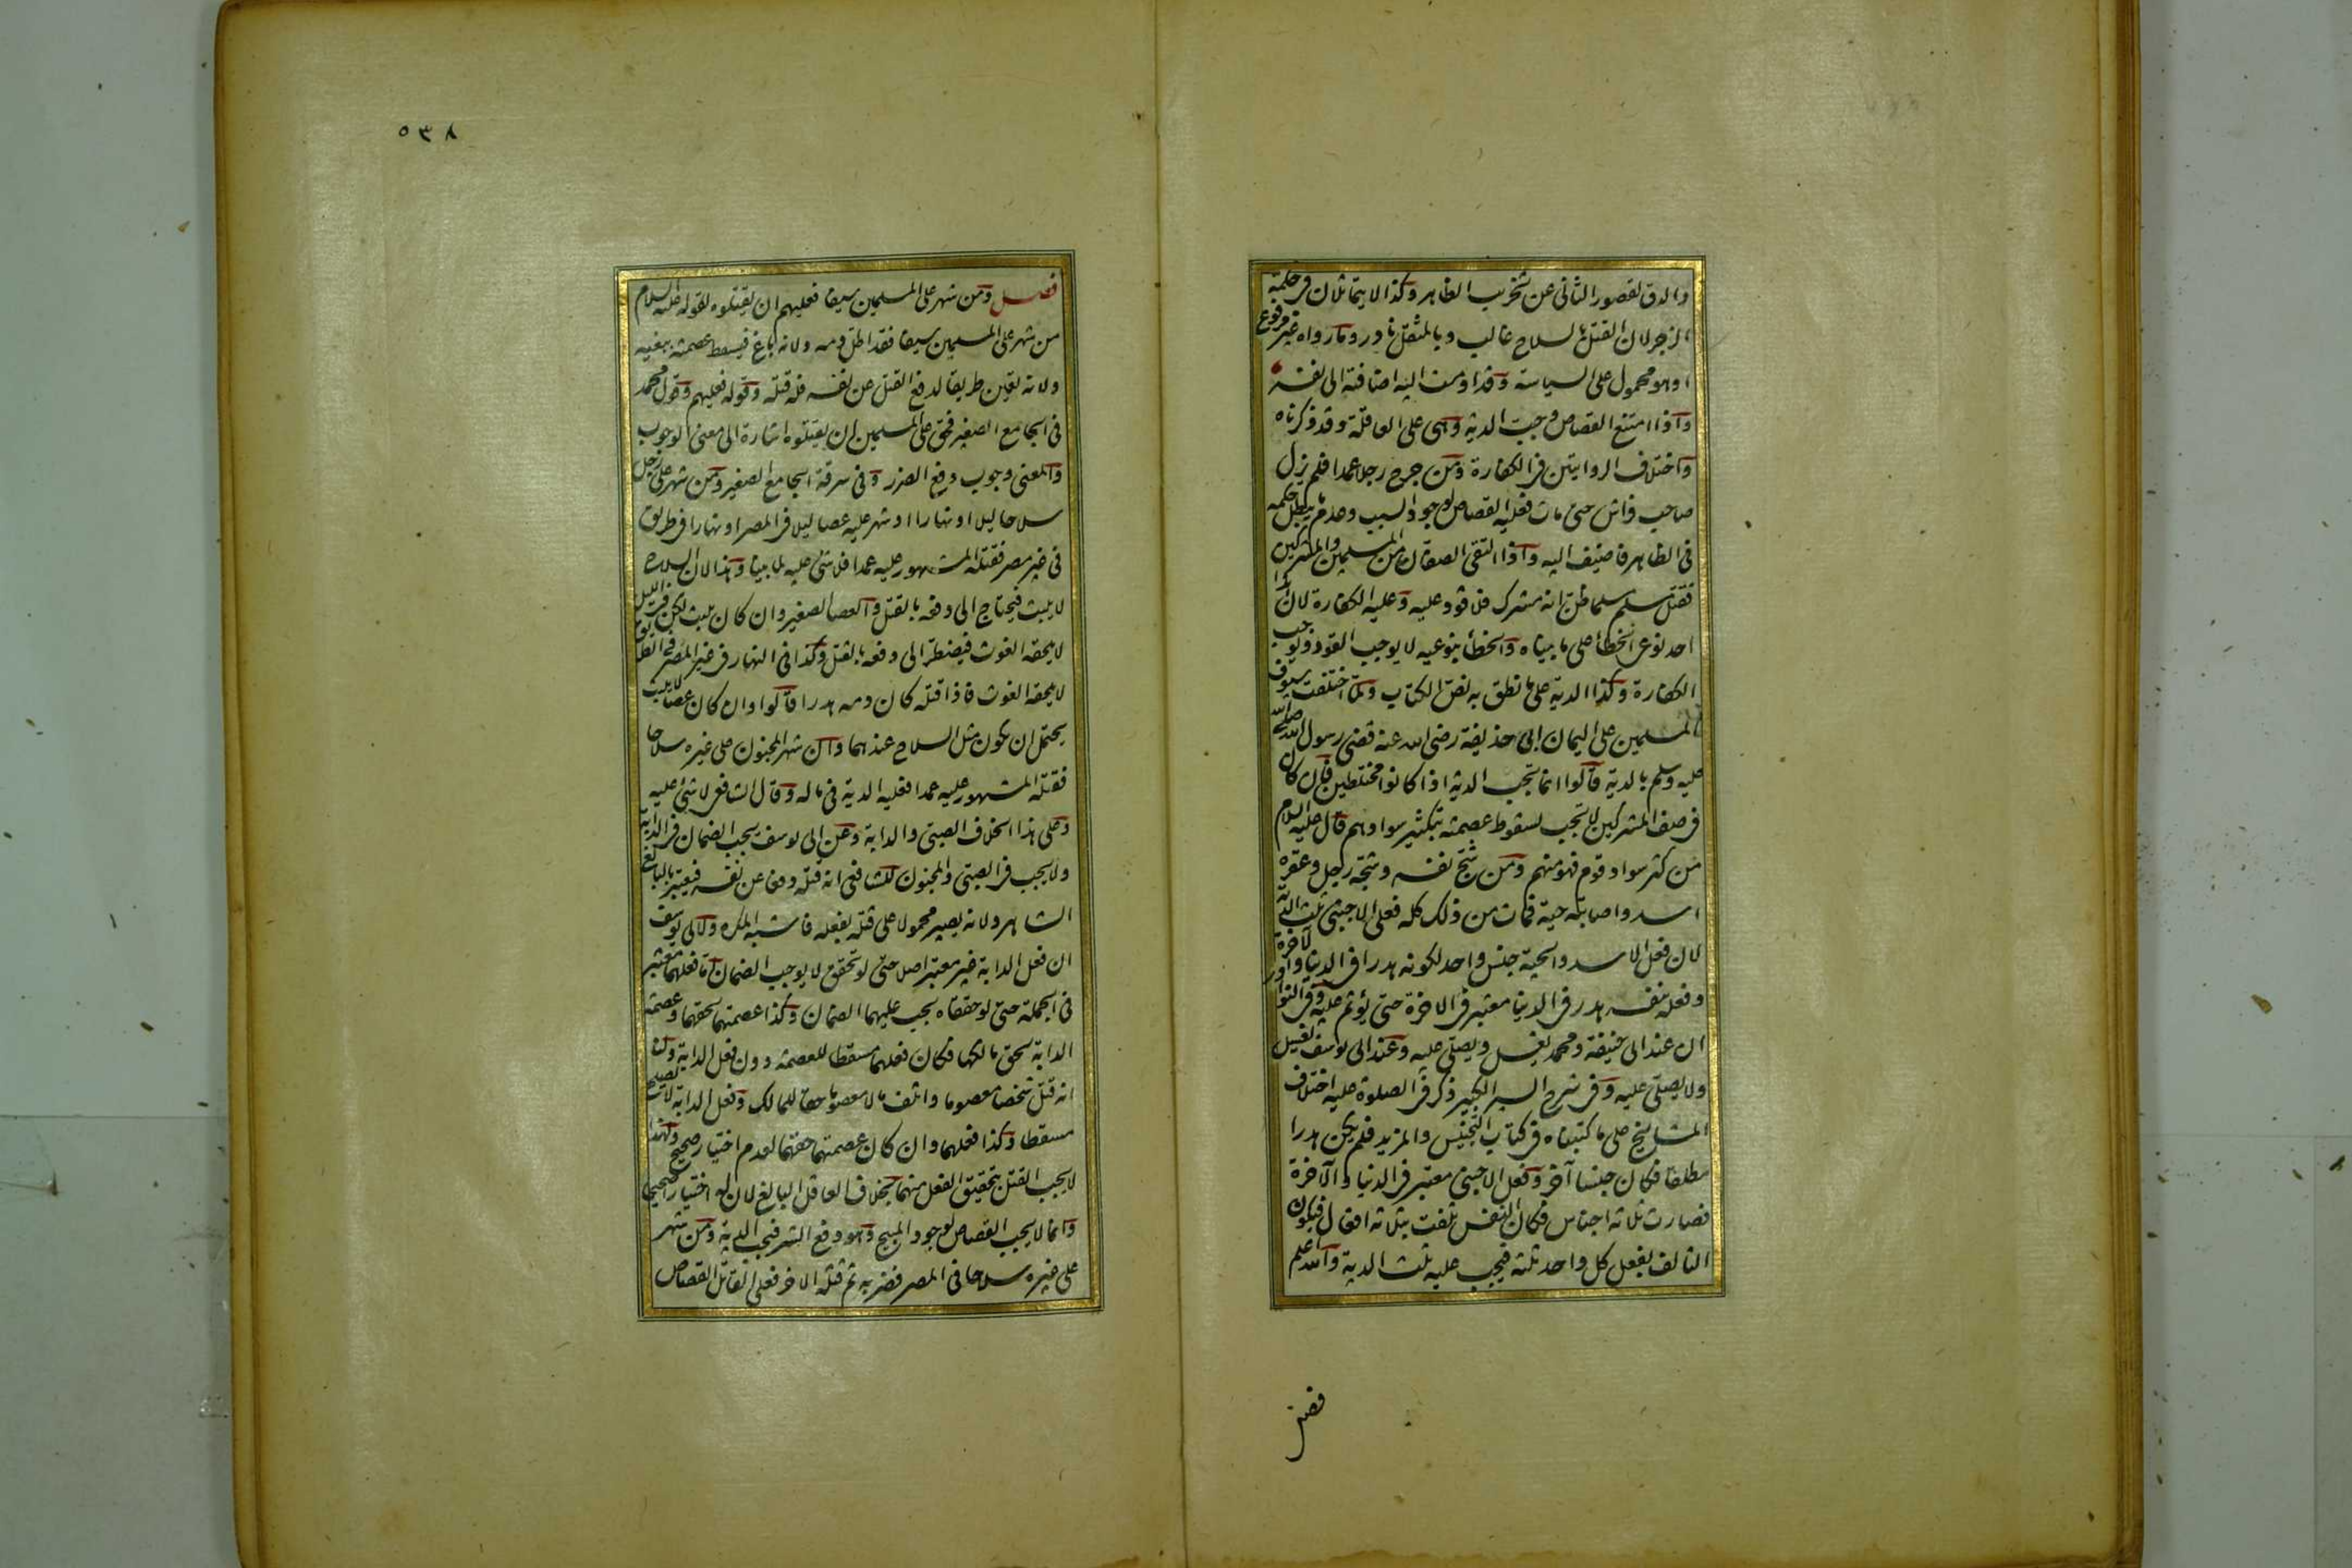 والدق لقصور الثاني عن تخريب الظاهر وكذا لا يتماثلان في حكمة
الزجر لان القتل بالسلاح غالب وبالمثقل نادر وما رواه غير مرفوع
او هو محمول على السياسة وقد اومت اليه اضافته الى نفسه
واذا امتنع القصاص وجبت الدية وهي على العاقلة وقد ذكرناه
واختلاف الروايتين في الكفارة ومن جرح رجلا عمدا فلم يزل
صاحب فراش حتى مات فعليه القصاص لوجود السبب وعدم ما يبطل حكمه
في الظاهر فاضيف اليه واذا التقى الصفان من المسلمين والمشركين
فقتل مسلم مسلما ظن انه مشرك فلا قود عليه وعليه الكفارة لان هذا
احد نوعي الخطأ على ما بيناه والخطأ بنوعيه لا يوجب القود ويوجب
الكفارة وكذا الدية على ما نطق به نص الكتاب ولما اختلفت سيوف
المسلمين على اليمان ابي حذيفة رضي الله عنه قضى رسول الله صلى الله
عليه وسلم بالدية قالوا انما تجب الدية اذا كانوا مختلطين فان كان
في صف المشركين لا تجب لسقوط عصمته بتكثير سوادهم قال عليه السلام
من كثر سواد قوم فهو منهم ومن شج نفسه وشجه رجل وعقره
اسد واصابته حية فمات من ذلك كله فعلى الاجنبي ثلث الدية
لان فعل الاسد والحية جنس واحد لكونه هدرا في الدنيا والاخرة
وفعله بنفسه هدر في الدنيا معتبر في الاخرة حتى يؤثم عليه وفي النوادر
ان عند ابي حنيفة ومحمد يغسل ويصلى عليه وعند ابي يوسف يغسل
ولا يصلى عليه وفي شرح السير الكبير ذكر في الصلوة عليه اختلاف
المشايخ على ما كتبناه في كتاب التجنيس والمزيد فلم يكن هدرا
مطلقا فكان جنسا آخر وفعل الاجنبي معتبر في الدنيا والآخرة
فصارت ثلاثة اجناس فكان النفس تلفت بثلاثة افعال فيكون
التالف بفعل كل واحد ثلثه فيجب عليه ثلث الدية والله اعلم
فصل
٥٣٨
فصل ومن شهر على المسلمين سيفا فعليهم ان يقتلوه لقوله عليه السلام
من شهر على المسلمين سيفا فقد اطل دمه ولانه باغ فيسقط عصمته ببغيه
ولانه تعين طريقا لدفع القتل عن نفسه فله قتله وقوله فعليهم وقول محمد
في الجامع الصغير فحق على المسلمين ان يقتلوه اشارة الى معنى الوجوب
والمعنى وجوب دفع الضرر وفي سرقة الجامع الصغير ومن شهر على رجل
سلاحا ليلا او نهارا او شهر عليه عصا ليلا في المصر او نهارا في طريق
في غير مصر فقتله المشهور عليه عمدا فلا شئ عليه لما بينا وهذا لان السلاح
لا يلبث فيحتاج الى دفعه بالقتل والعصا الصغير وان كان يلبث لكن في الليل
لا يلحقه الغوث فيضطر الى دفعه بالقتل وكذا في النهار في غير المصر في الطريق
لا يلحقه الغوث فاذا قتله كان دمه هدرا قالوا وان كان عصا لا يلبث
يحتمل ان يكون مثل السلاح عندهما وان شهر المجنون على غيره سلاحا
فقتله المشهور عليه عمدا فعليه الدية في ماله وقال الشافعي لا شئ عليه
وعلى هذا الخلاف الصبي والدابة وعن ابي يوسف يجب الضمان في الدابة
ولا يجب في الصبي والمجنون للشافعي انه قتله دفعا عن نفسه فيعتبر بالبالغ
الشاهر ولانه يصير محمولا على قتله بفعله فاشبه المكره ولابي يوسف
ان فعل الدابة غير معتبر اصلا حتى لو تحقق لا يوجب الضمان اما فعلهما معتبر
في الجملة حتى لو حققاه يجب عليهما الضمان وكذا عصمتهما لحقهما وعصمة
الدابة لحق مالكها فكان فعلهما مسقطا للعصمة دون فعل الدابة ولنا
انه قتل شخصا معصوما واتلف مالا معصوما حقا للمالك وفعل الدابة لا يصلح
مسقطا وكذا فعلهما وان كان عصمتهما حقهما لعدم اختيار صحيح ولهذا
لا يجب القتل بتحقيق الفعل منهما بخلاف العاقل البالغ لان له اختيارا صحيحا
وانما لا يجب القصاص لوجود المبيح وهو دفع الشر فيجب الدية ومن شهر
على غيره سلاحا في المصر فضربه ثم قتله الاخر فعلى القاتل القصاص